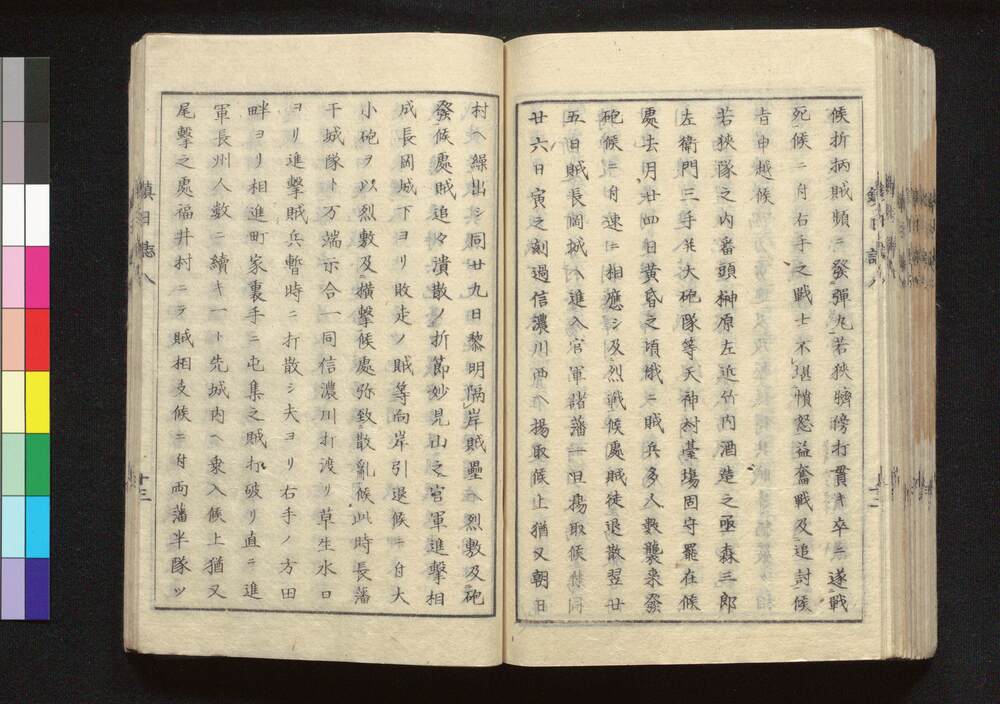 候折柄賊頻ニ發彈丸若狹臍傍打貫キ卒ニ遂戰
死候ニ付右手之戰士不堪憤怒益奮戰及追討候
旨申越候
若狹隊之内番頭榊原左近竹内酒造之亟森三郎
左衛門三手共大砲隊等天神村臺場固守罷在候
處去月廿四日黄昏之頃俄ニ賊兵多人數襲来發
砲候ニ付速ニ相應シ及烈戰候處賊徒退散翌廿
五日賊長岡城ヘ進入官軍諸藩一旦揚取候
廿六日寅之刻過信濃川西ヘ揚取候上猶又朝日
鎮日誌八
十三
村ヘ繰出シ同廿九日黎明隔岸賊壘ヘ烈敷及砲
發候處賊追々潰散ノ折節妙見山之官軍進擊相
成長岡城下ヨリ敗走ノ賊等向岸引退候ニ付大
小砲ヲ以烈敷及横擊候處弥致散亂候此時長藩
干城隊ト万端示合一同信濃川打渡リ草生水口
ヨリ進擊賊兵暫時ニ打散シ夫ヨリ右手ノ方田
畔ヨリ相進町家裏手ニ屯集之賊打破リ直ニ進
軍長州人數ニ續キ一ト先城内ヘ乗入候上猶又
尾擊之處福井村ニテ賊相支候ニ付両藩半隊ツ